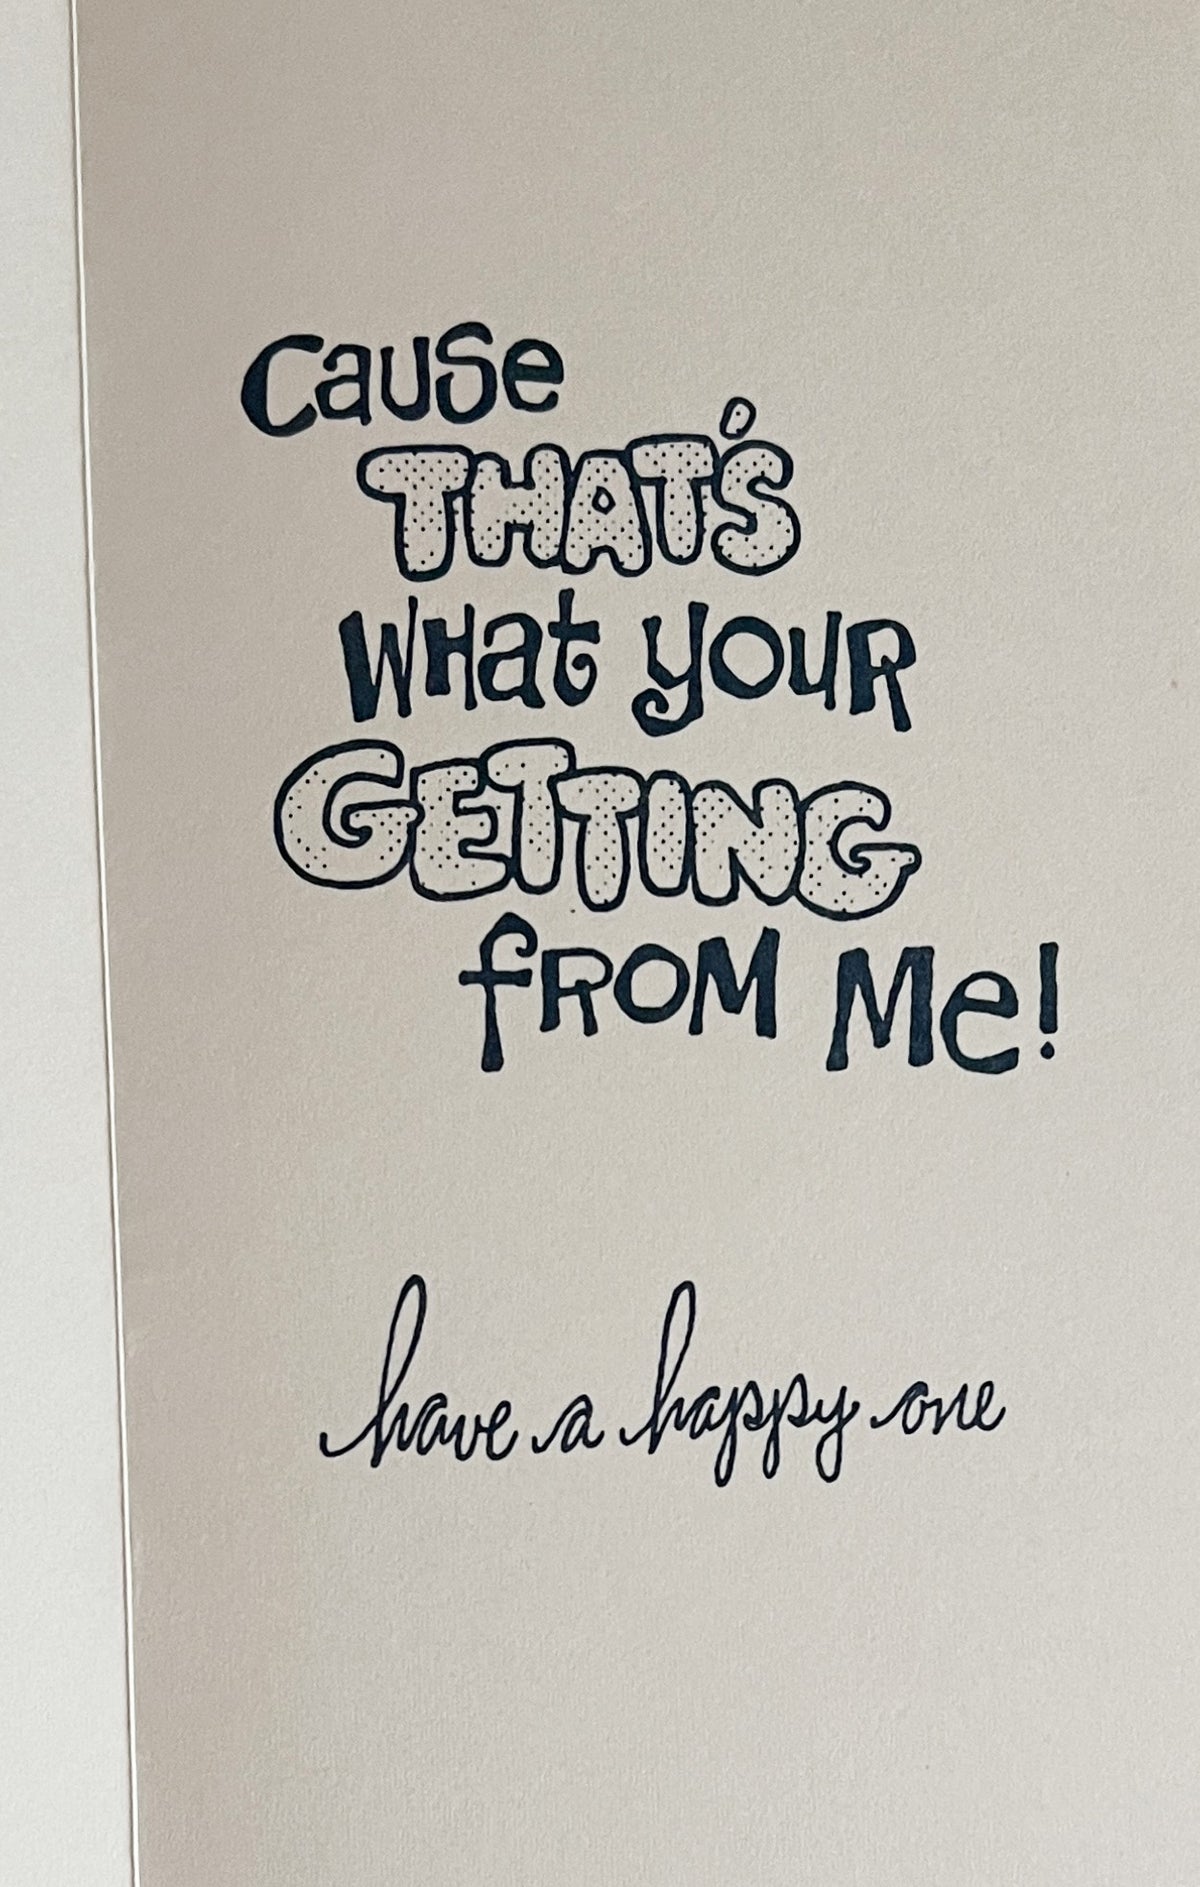 Cause
THAT'S
What your
GETTING
from Me!
have a happy one